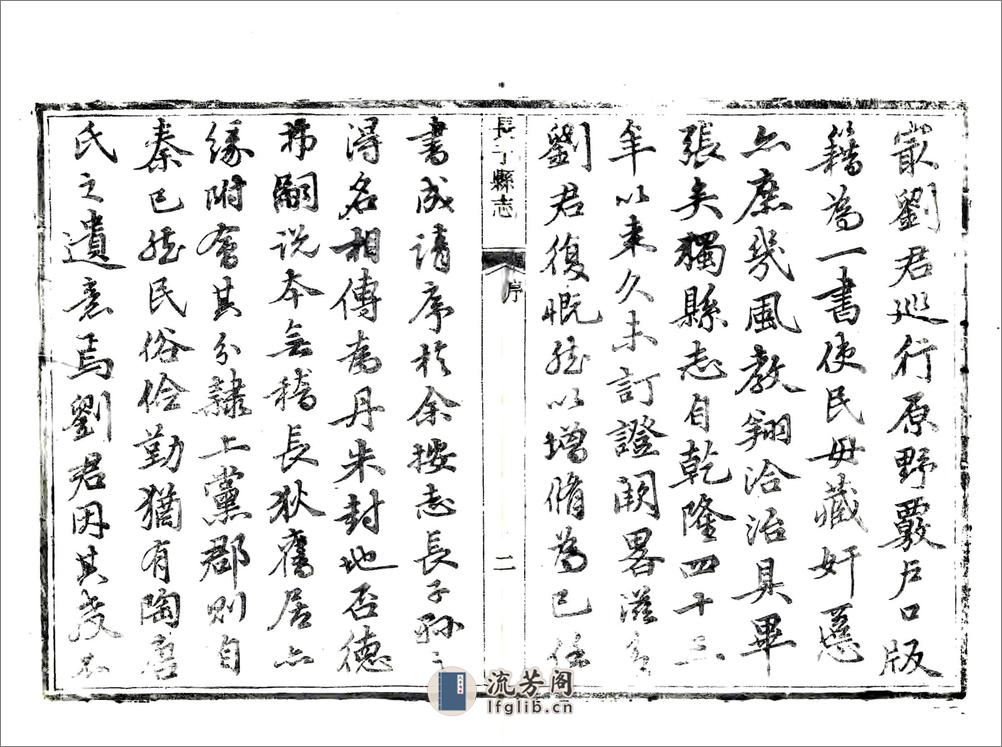 最劉君巡行原野覈戶口版
籍為一書使民毋藏奸慝
亦庶幾風教翔洽治具畢
張矣獨縣志自乾隆四十三
年以來久未訂證闕畧滋多
劉君復慨然以增脩為已任
長子縣志
序
二
書成請序於余按志長子孫之
得名相傳為丹朱封地否德
弗嗣說本無稽長狄舊居亦
緣附會其分隸上黨郡則自
秦已然民俗儉勤猶有陶唐
氏之遺意焉劉君因其政不
流芳阁
lfglib.cn